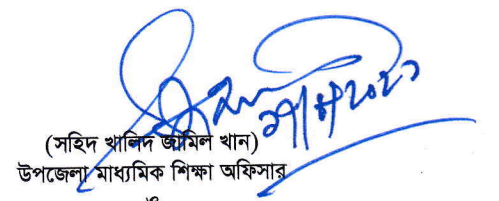 (সহিদ খালিদ জামিল খান)
উপজেলা মাধ্যমিক শিক্ষা অফিসার
ও